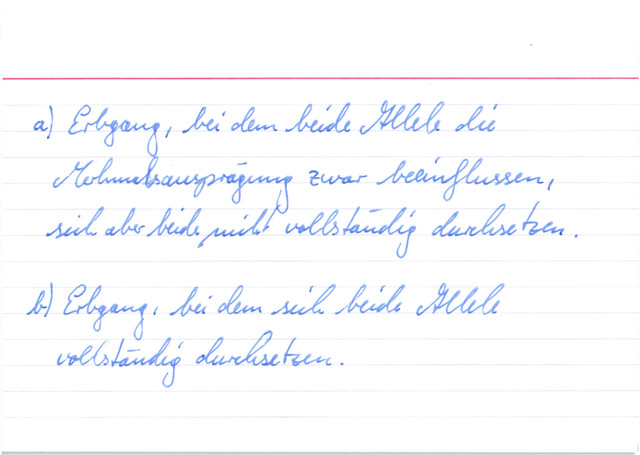 a) Erbgang, bei dem beide Allele die
Merkmalsausprägung zwar beeinflussen,
sich aber beide nicht vollständig durchsetzen.
b) Erbgang, bei dem sich beide Allele
vollständig durchsetzen.